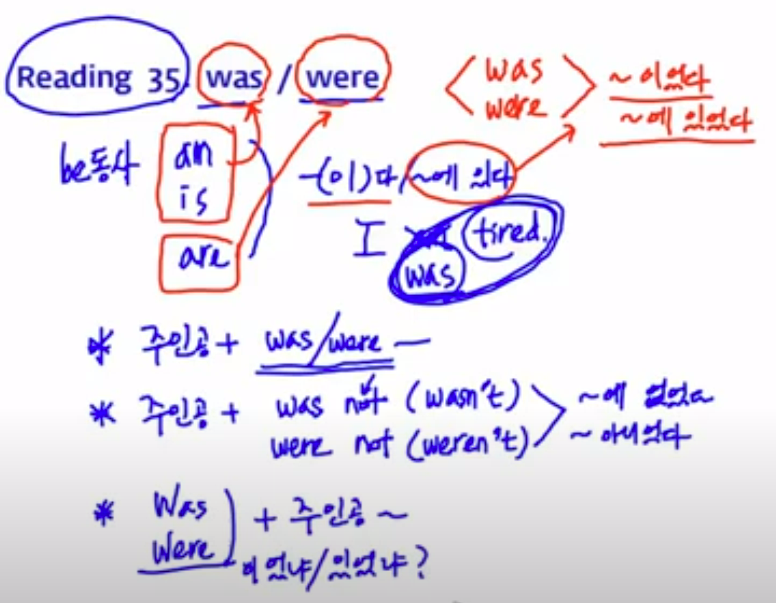 Reading 35. was / were
was
were
~이었다
~에 있었다
be동사
am
is
are
~(이)다/~에 있다
I tired.
was
* 주인공 + was/were ~
* 주인공 + was not (wasn't)
were not (weren't)
~에 없었다
~ 아니었다
* Was
Were
+ 주인공 ~
이었냐/있었냐?